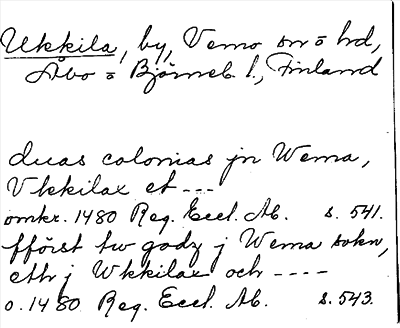 Ukkila, by, Vemo sn o hd,
Åbo o Björneb. l., Finland
duas colonias jn Wema,
Vkkilax et ---
omkr. 1480 Reg. Eccl. Ab. s. 541.
fförst tw godz j Wema sokn,
eth j Wkkilax och ----
o. 1480 Reg. Eccl. Ab. s. 543.